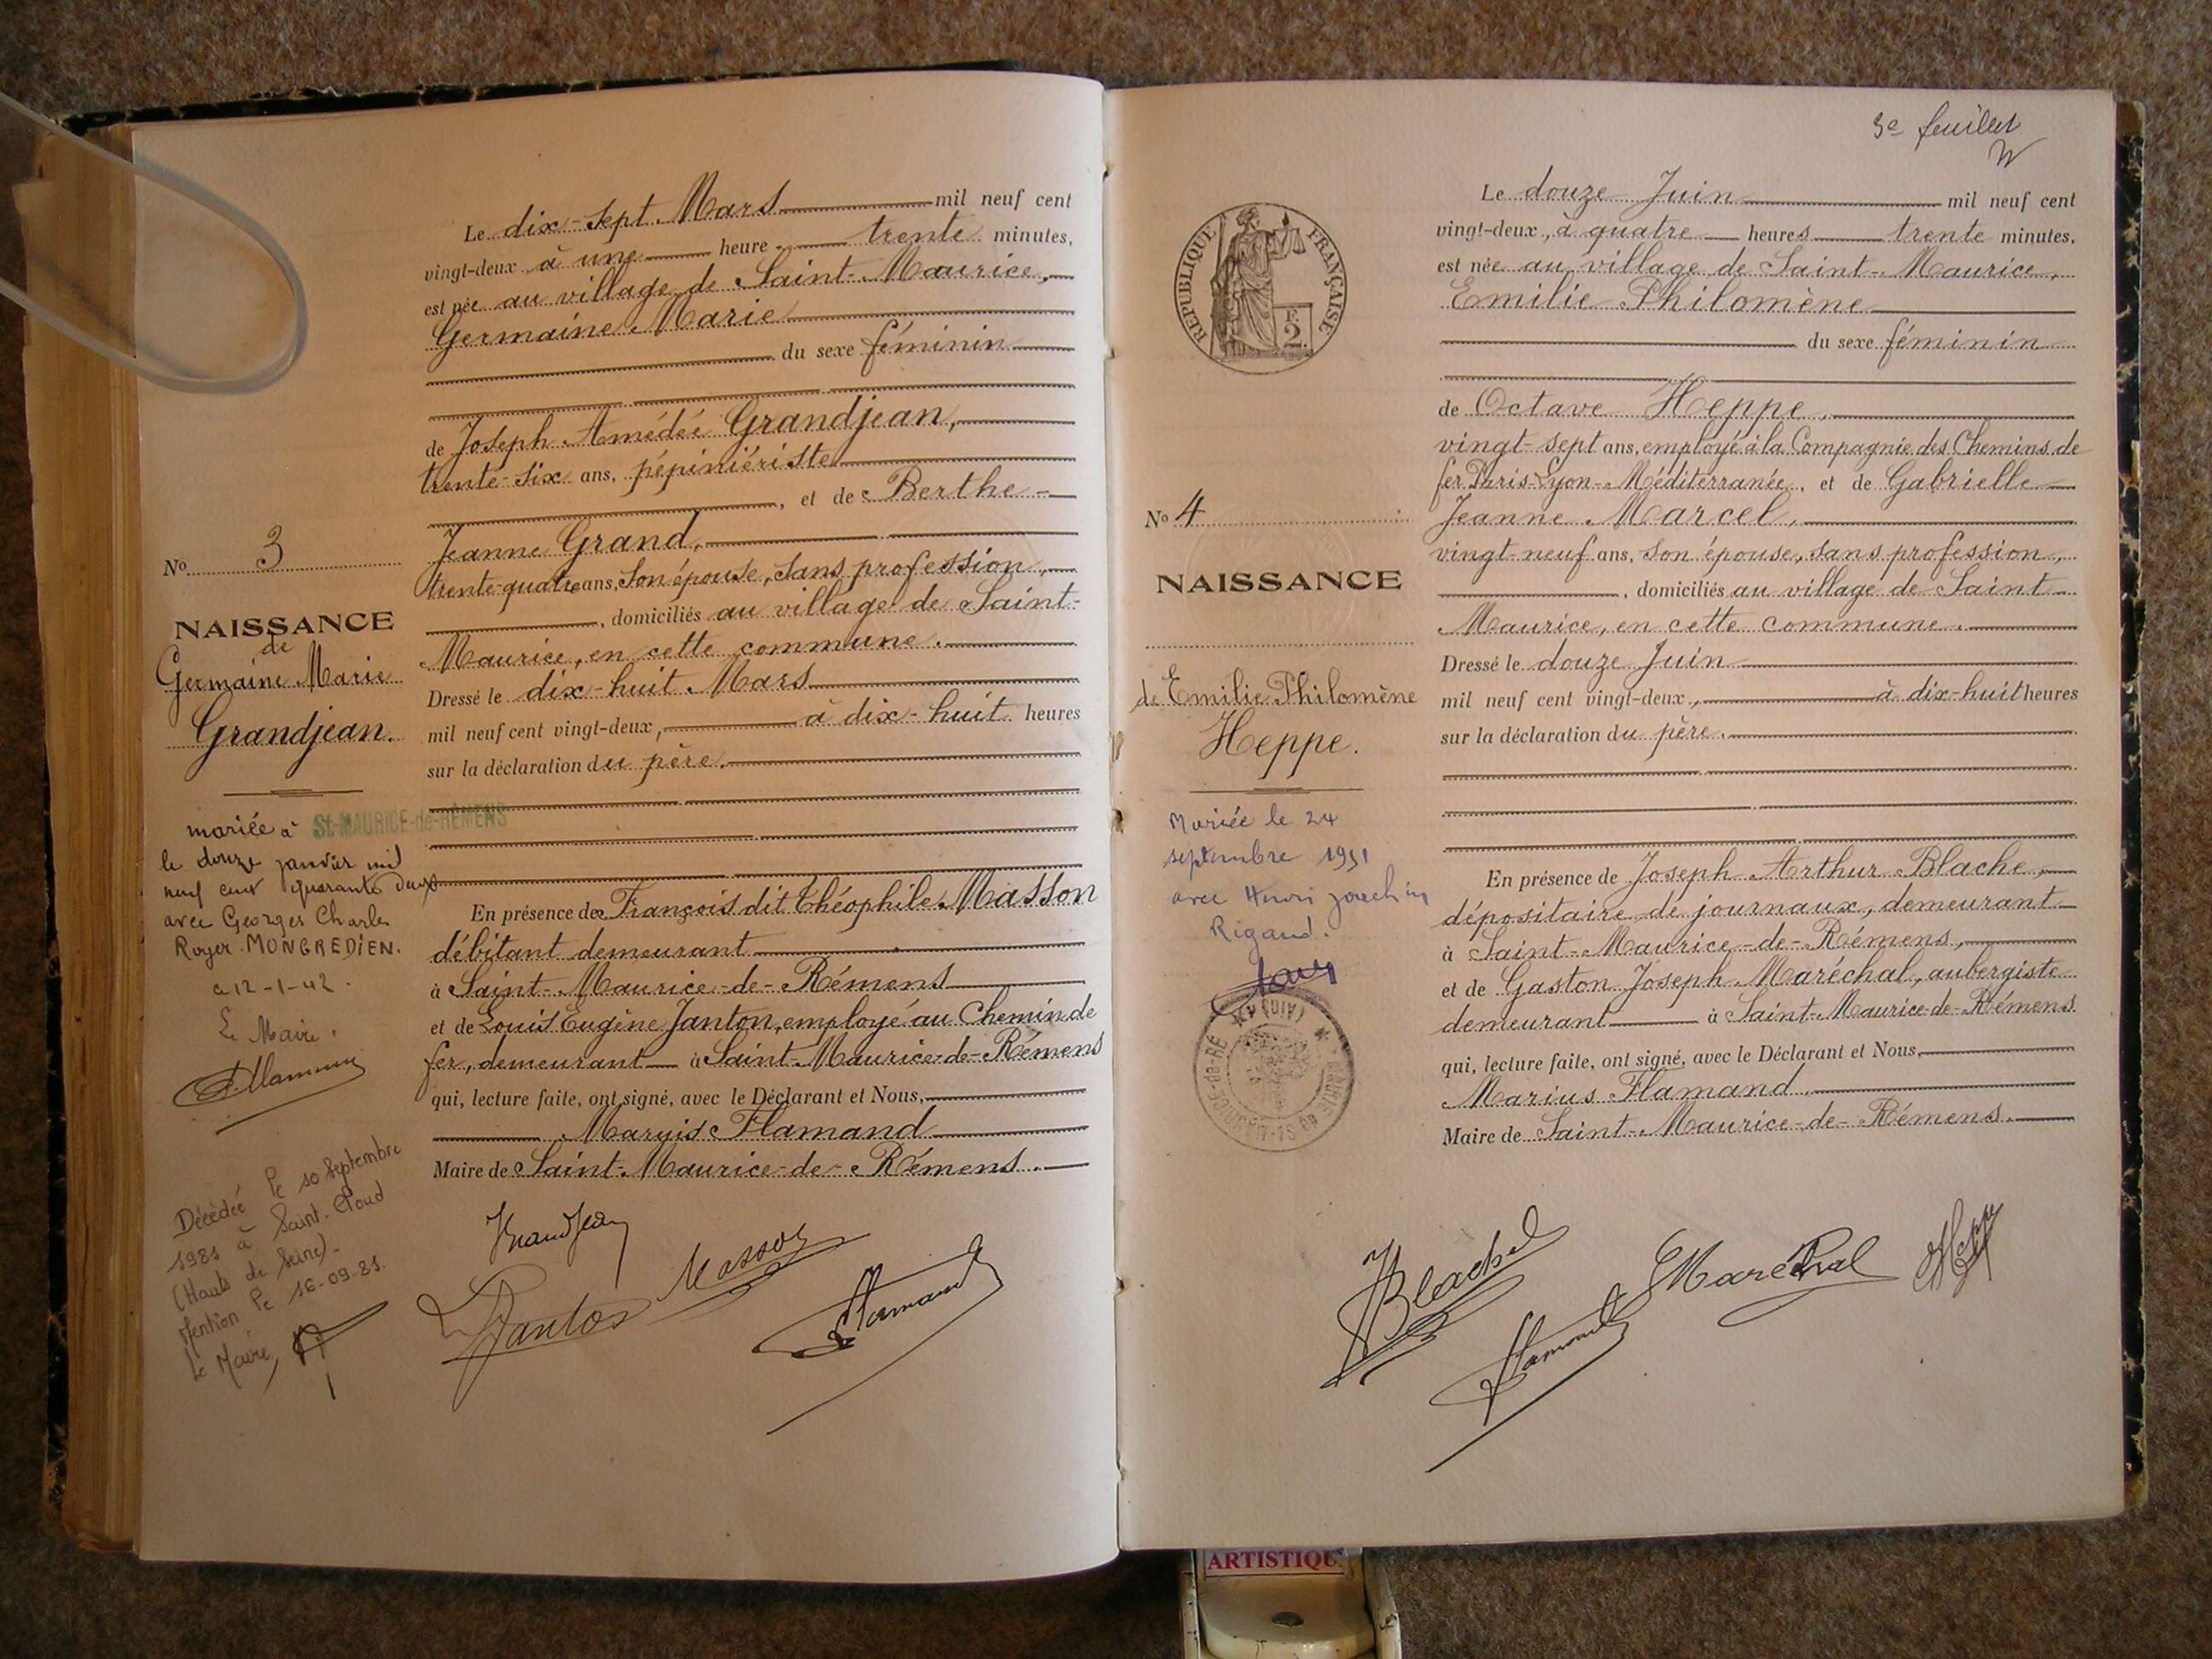 Le dix-sept Mars mil neuf cent
vingt-deux à une heure trente minutes,
est née au village de Saint-Maurice,
Germaine Marie
du sexe féminin
de Joseph Amédée Grandjean,
trente-six ans, pépiniériste
, et de Berthe
Jeanne Grand,
trente-quatre ans, son épouse, sans profession,
, domiciliés au village de Saint-
Maurice, en cette commune.
Dressé le dix-huit Mars
mil neuf cent vingt-deux, à dix-huit heures
sur la déclaration du père.
En présence de François dit Théophile Masson
débitant demeurant
à Saint-Maurice-de-Rémens
et de Louis Eugène Janton, employé au Chemin de
fer, demeurant à Saint-Maurice-de-Rémens
qui, lecture faite, ont signé, avec le Déclarant et Nous,
Marius Flamand
Maire de Saint-Maurice-de-Rémens.
Grandjean
Masson
Janton
Flamand
No 3
NAISSANCE
de
Germaine Marie
Grandjean.
mariée à St-MAURICE-de-RÉMENS
le douze janvier mil
neuf cent quarante deux
avec Georges Charles
Roger MONGREDIEN.
a 12-1-42.
Le Maire.
Flamand
Décédée le 10 Septembre
1981 à Saint-Cloud
(Hauts de Seine).
Mention le 16-09-81.
Le Maire,
3e feuillet
RÉPUBLIQUE FRANÇAISE
F.
2.
No 4
NAISSANCE
de Emilie Philomène
Heppe.
Mariée le 24
septembre 1951
avec Henri Joachim
Rigaud.
MAIRIE de St-MAURICE-de-RÉ
(AIN)
Le douze Juin mil neuf cent
vingt-deux, à quatre heures trente minutes,
est née au village de Saint-Maurice,
Emilie Philomène
du sexe féminin
de Octave Heppe,
vingt-sept ans, employé à la Compagnie des Chemins de
fer Paris-Lyon-Méditerranée, et de Gabrielle
Jeanne Marcel,
vingt-neuf ans, son épouse, sans profession,
, domiciliés au village de Saint-
Maurice, en cette commune.
Dressé le douze Juin
mil neuf cent vingt-deux, à dix-huit heures
sur la déclaration du père.
En présence de Joseph Arthur Blache,
dépositaire de journaux, demeurant
à Saint-Maurice-de-Rémens,
et de Gaston Joseph Maréchal, aubergiste
demeurant à Saint-Maurice-de-Rémens
qui, lecture faite, ont signé, avec le Déclarant et Nous,
Marius Flamand,
Maire de Saint-Maurice-de-Rémens.
Blache
Maréchal
Heppe
Flamand
ARTISTIQU